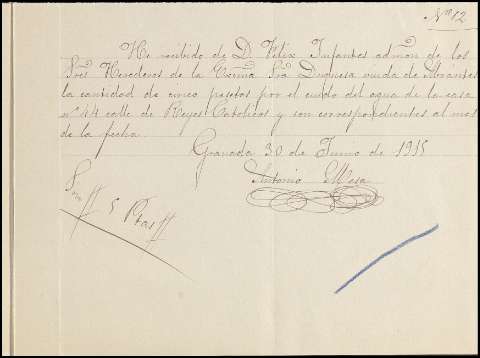 Nº 12
He recibido de D. Felix Infantes admon de los
Sres Herederos de la Excma Sra Duquesa viuda de Abrantes
la cantidad de cinco pesetas por el cuido del agua de la casa
nº 44 calle de Reyes Catolicos y son correspondientes al mes
de la fecha.
Granada 30 de Junio de 1915
Antonio Mesa
Son ff 5 Ptas ff